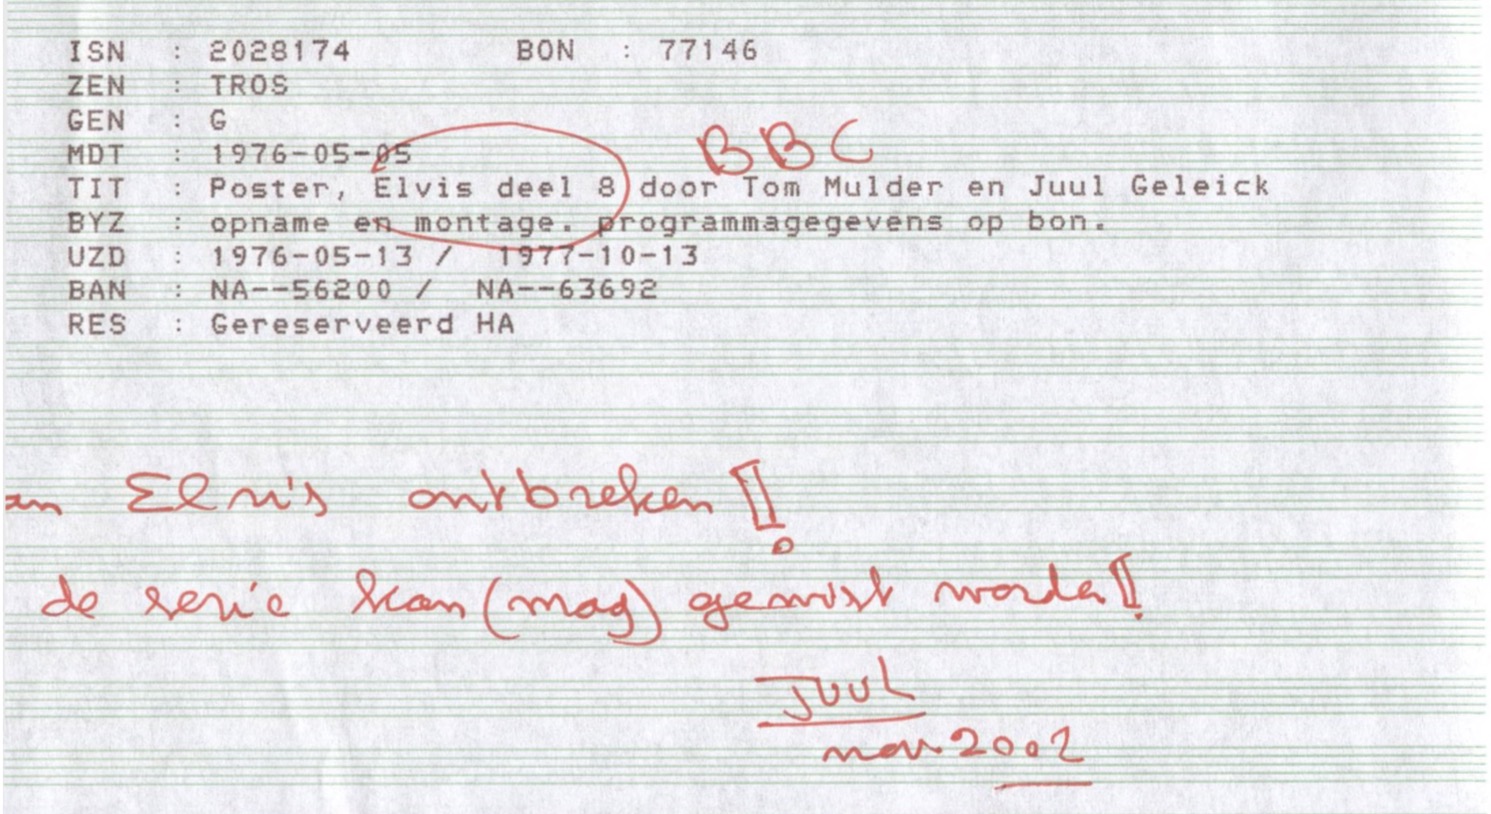 ISN : 2028174 BON : 77146
ZEN : TROS
GEN : G
MDT : 1976-05-05
BBC
TIT : Poster, Elvis deel 8 door Tom Mulder en Juul Geleick
BYZ : opname en montage. programmagegevens op bon.
UZD : 1976-05-13 / 1977-10-13
BAN : NA--56200 / NA--63692
RES : Gereserveerd HA
an Elvis ontbreken!
de serie kan (mag) gewist worden!
Juul
nov. 2002